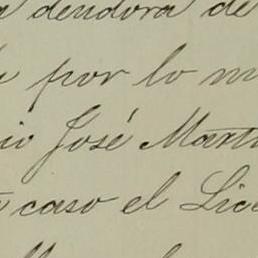 deudora de
por lo m
io José Mart
caso el Lic